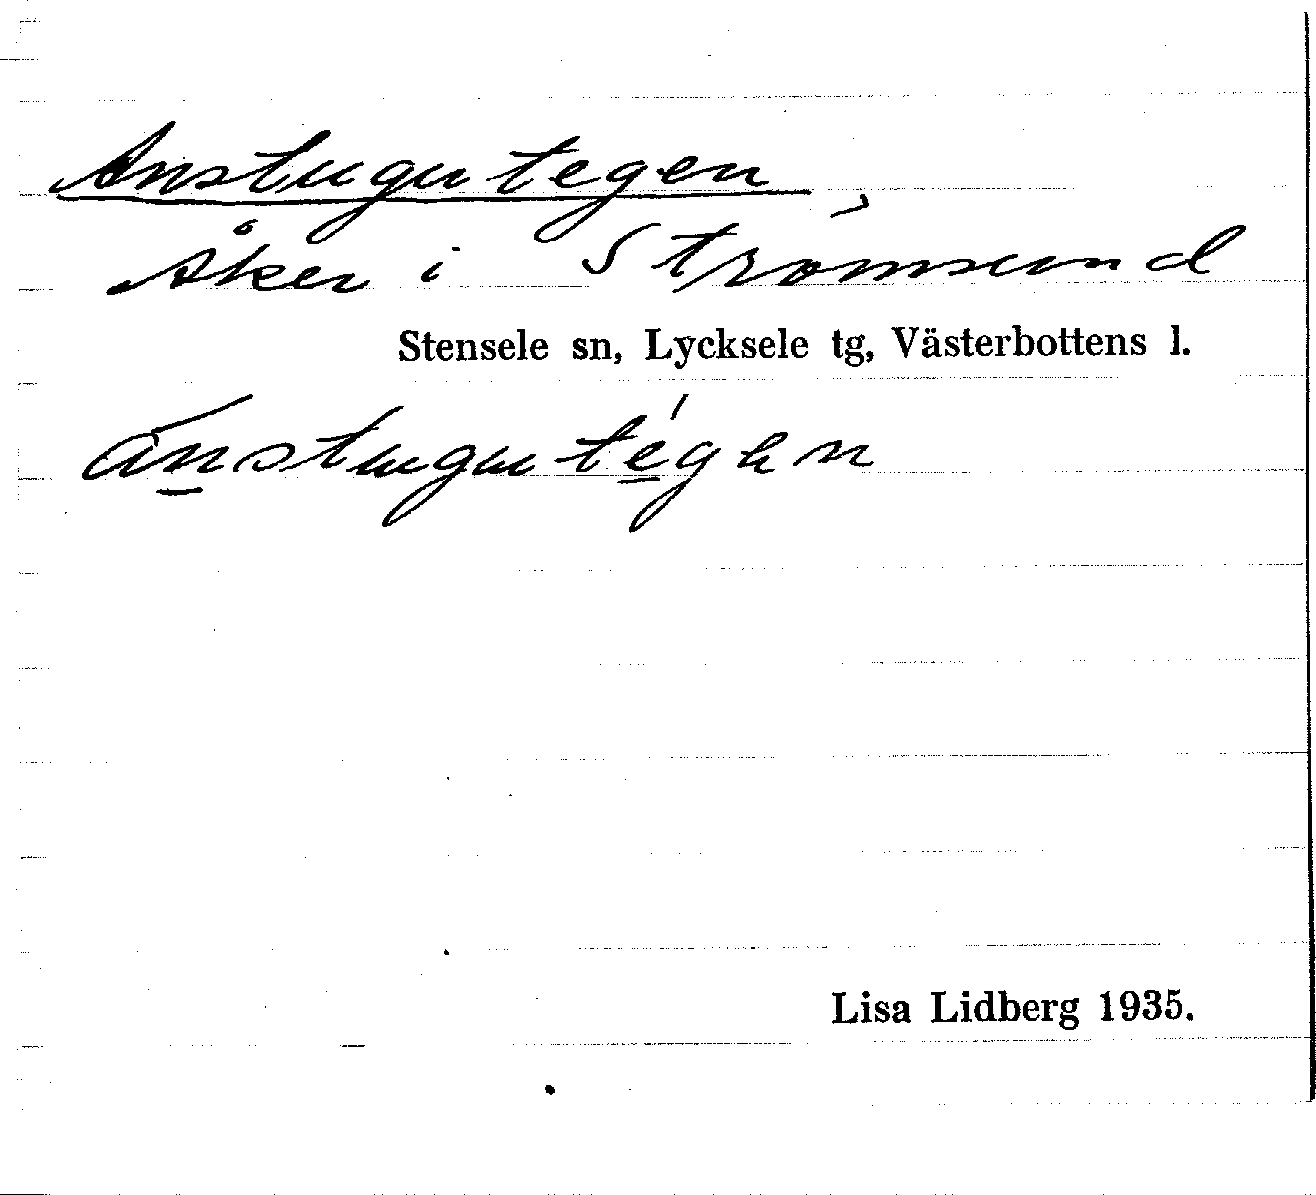 Anstugutegen
Åker i Strömsund
Stensele sn, Lycksele tg, Västerbottens l.
a̍ns̠tuguté̠gən
Lisa Lidberg 1935.